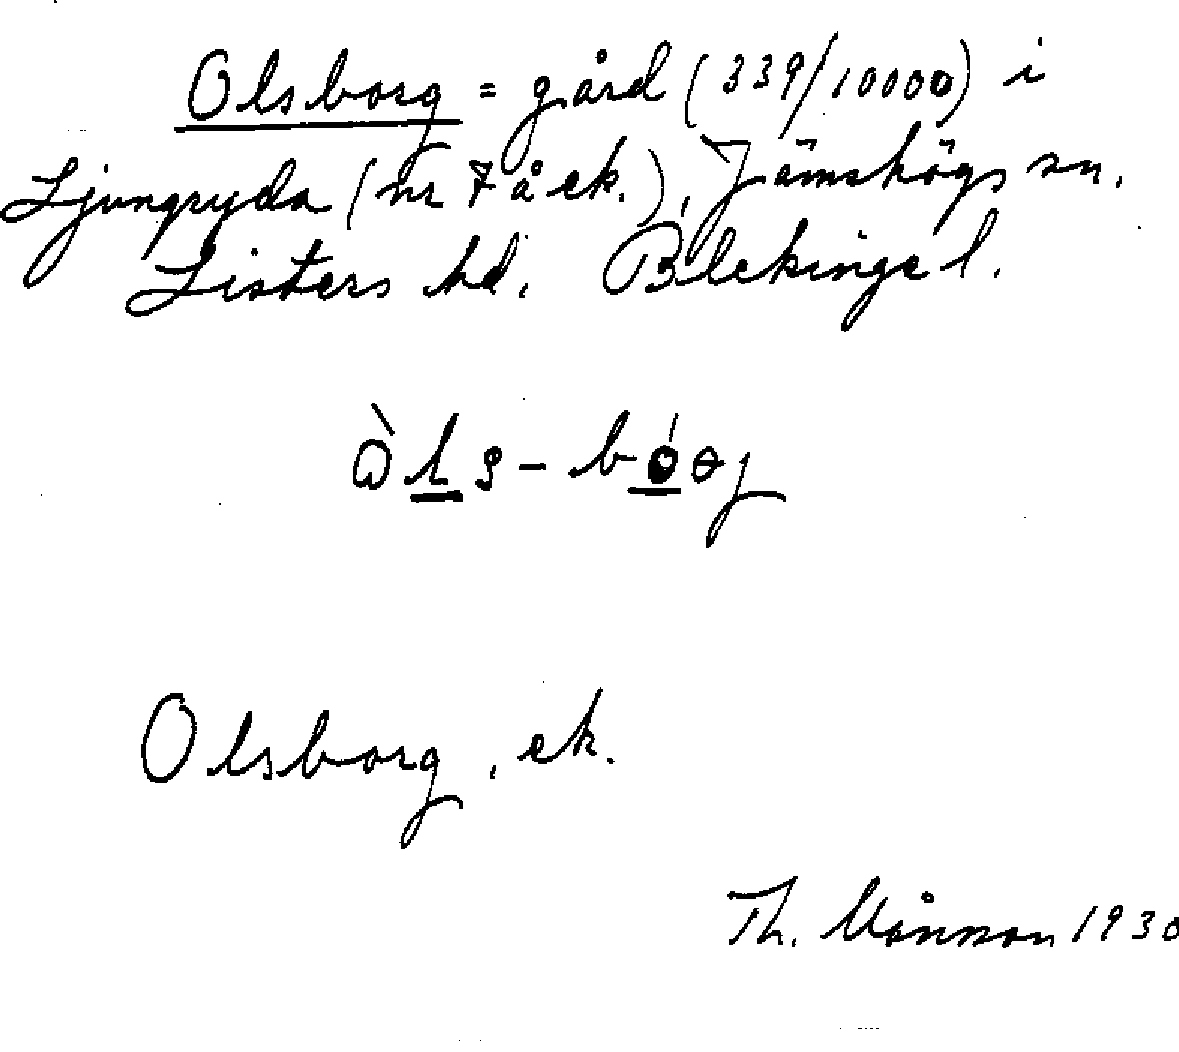 Olsborg = gård (339/10000) i
Ljungryda (nr 7 å ek.), Jämshögs sn.
Listers hd. Blekinge l.
Olsborg, ek.
Th. Månsson 1930